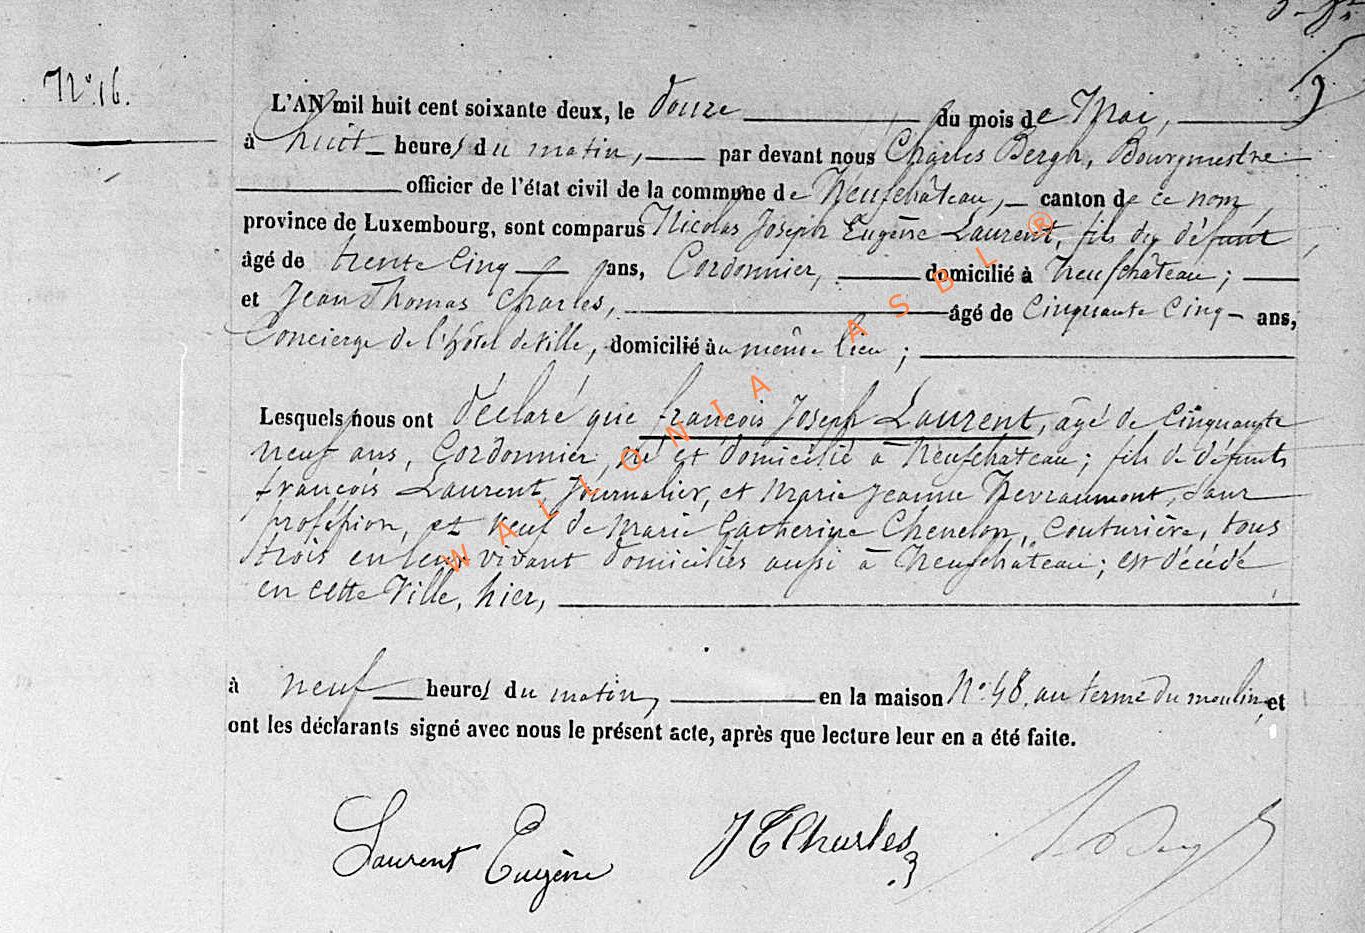 N° 16.
L'AN mil huit cent soixante deux, le douze du mois de Mai,
à huit heures du matin, par devant nous Charles Bergh, Bourgmestre
officier de l'état civil de la commune de Neufchâteau, canton de ce nom,
province de Luxembourg, sont comparus Nicolas Joseph Eugène Laurent, fils du défunt
âgé de trente Cinq ans, Cordonnier, domicilié à Neufchâteau;
et Jean Thomas Charles, âgé de Cinquante Cinq ans,
Concierge de l'hôtel de Ville, domicilié au même lieu;
Lesquels nous ont déclaré que françois Joseph Laurent, âgé de Cinquante
neuf ans, Cordonnier, né et domicilié à Neufchateau; fils de défunts
françois Laurent, Journalier, et Marie Jeanne Nevraumont, sans
profession, et veuf de Marie Catherine Chenelon, couturière, tous
trois en leur vivant domiciliés aussi à Neufchateau; est décédé
en cette Ville, hier,
à neuf heures du matin, en la maison N° 48, au terme du moulin, et
ont les déclarants signé avec nous le présent acte, après que lecture leur en a été faite.
Laurent Eugène
J T Charles
WALLONIA ASBL ®